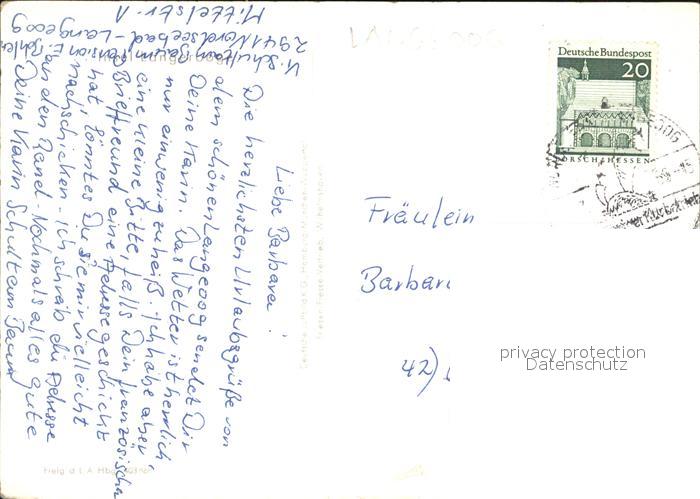 Liebe Barbara!
Die herzlichsten Urlaubsgrüße von
dem schönen Langeoog sendet Dir
Deine Karin. Das Wetter ist herrlich
nur ein wenig zu heiß. Ich habe aber
eine kleine Bitte, falls Dein französischer
Brieffreund eine Adresse geschickt
hat, könntest Du sie mir vielleicht
nachschicken. Ich schreib die Adresse
an den Rand. Nochmals alles gute
Deine Karin Schultem Baum
K. Schultem Baum Pension E.
2941 Nordseebad-Langeoog
Mittelstr. 1
LANGEOOG
Deutsche Bundespost
20
LORSCH/HESSEN
Fräulein
Barbara
42)
privacy protection
Datenschutz